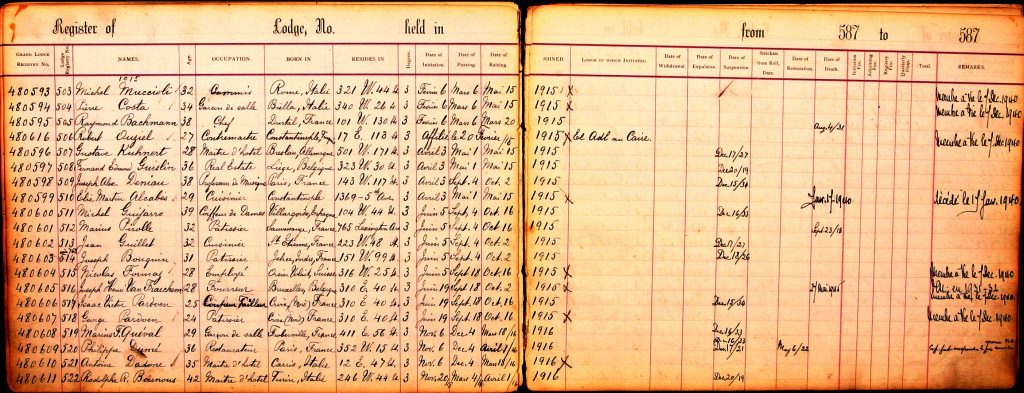 Register of Lodge, No. held in from 587 to 587
GRAND LODGE REGISTRY NO. Lodge Registry No. NAMES. Age. OCCUPATION. BORN IN RESIDES IN Degree. Date of Initiation. Date of Passing. Date of Raising. JOINED. LODGE IN WHICH INITIATED. Date of Withdrawal. Date of Expulsion. Date of Suspension. Stricken from Roll, Date. Date of Restoration. Date of Death. Initiation Fee. Adjoining Fee. Quarterly Dues. Total. REMARKS.
1915
480593 503 Michel Muccioli 32 Commis Rome, Italie 321 W. 44 3 Fevr. 6 Mars 6 Mai 15 1915 x membre à vie le 7 Dec. 1940
480594 504 Pierre Costa 34 Garcon de salle Biella, Italie 340 W. 26 3 Fevr. 6 Mars 6 Mai 15 1915 x membre à vie le 7 Dec. 1940
480595 505 Raymond Bachmann 38 Chef France 101 W. 130 3 Fevr. 6 Mars 6 Mars 20 1915 Aug 4/31
480616 506 Robert 27 Contremaitre Constantinople 17 E. 113 3 Affilié le 20 Fevrier 1915 x El Adl au Caire. Membre à vie le 7 Dec. 1940
480596 507 Gustave Kuhnert 28 Maitre d'hotel Breslau, Allemagne 501 W. 171 3 Avril 3 Mai 1 Mai 15 1915 Dec 17/27
480597 508 Fernand Edmond 36 Real Estate Liege, Belgique 323 W. 30 3 Avril 3 Mai 1 Mai 15 1915 Dec 20/19
480598 509 Joseph Alex. Deniau 38 Professeur de Musique Paris, France 143 W. 117 3 Avril 3 Sept. 4 Oct. 2 1915 Dec 15/30
480599 510 Elie Martin Alcabes 29 Cuisinier Constantinople 1369-5 Ave. 3 Avril 3 Mai 1 Mai 15 1915 x Janv. 17-1940 décédé le 17 Janv. 1940
480600 511 Michel Guijarro 39 Coiffeur de Dames Espagne 104 W. 44 3 Juin 5 Sept. 4 Oct. 16 1915 Dec 16/33
480601 512 Marius Pirolle 32 Patissier France 765 Lexington Ave 3 Juin 5 Sept. 4 Oct. 16 1915 Sept 23/18
480602 513 Jean Guillet 32 Cuisinier St. Etienne, France 223 W. 48 3 Juin 5 Sept. 4 Oct. 2 1915 Dec 17/27
480603 514 Joseph Bouquin 31 Patissier France 151 W. 99 3 Juin 5 Sept. 4 Oct. 2 1915 Dec 18/26
480604 515 Nicolas Formaz 28 Employé Suisse 316 W. 25 3 Juin 5 Sept. 18 Oct. 16 1915 x Membre à Vie le 7 Dec. 1940
480605 516 Joseph Henri Van Fraechem 28 Fourreur Bruxelles, Belgique 310 E. 40 3 Juin 19 Sept. 18 Oct. 2 1915 x
480606 517 Isaac Victor Pardoen 25 Coupeur Tailleur Croix, (Nord) France 310 E. 40 3 Juin 19 Sept. 18 Oct. 16 1915 membre à vie le 7 Dec. 1940
480607 518 George Pardoen 24 Patissier Croix, (Nord) France 310 E. 40 3 Juin 19 Sept. 18 Oct. 16 1915 x Membre à vie le 7 Dec. 1940
480608 519 Marius F. Quéval 29 Garcon de salle France 411 E. 56 3 Nov. 6 Dec. 4 Mars 18/16 1916 Dec 16/33
480609 520 Philippe 36 Restaurateur Paris, France 352 W. 15 3 Nov. 6 Dec 4 Avril 1/16 1916 May 6/22
480610 521 Antoine Dadone 35 Maitre d'hotel Italie 12 E. 47 3 Nov. 6 Dec 4 Mars 18/16 1916 x
480611 522 Rodolphe R. Bounous 42 Maitre d'hotel Turin, Italie 246 W. 44 3 Nov. 20 Mars 4/16 Avril 1/16 1916 Dec 20/19